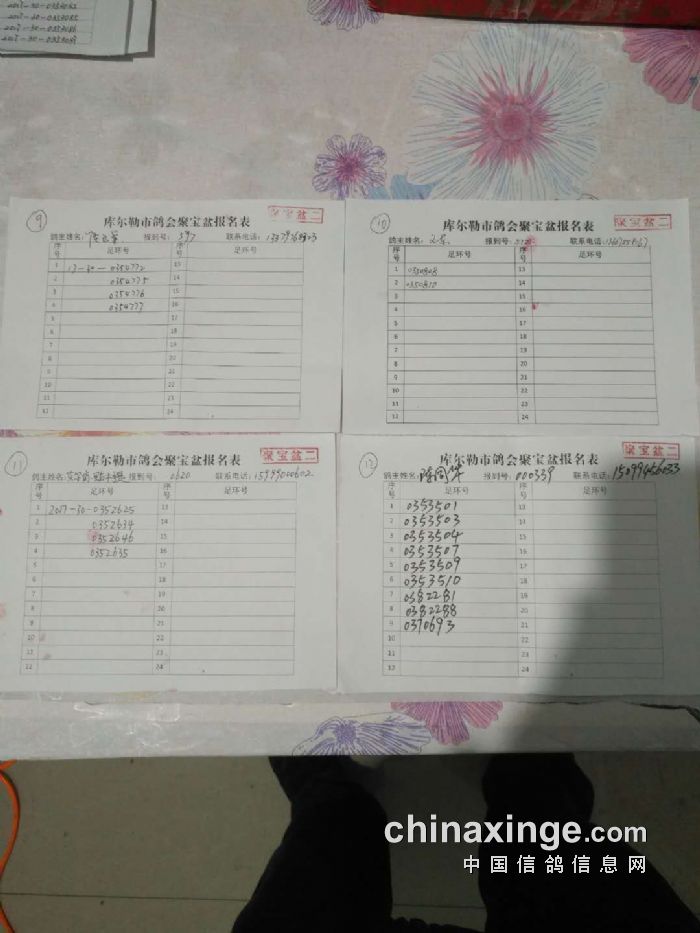 2017-30-0353085
⑨
库尔勒市鸽会聚宝盆报名表
聚宝盆二
鸽主姓名: 报到号: 597 联系电话:
序号 足环号 序号 足环号
1 17-30-0354772 13
2 0354775 14
3 0354776 15
4 0354777 16
5 17
6 18
7 19
8 20
9 21
10 22
11 23
12 24
⑩
库尔勒市鸽会聚宝盆报名表
聚宝盆二
鸽主姓名: 报到号: 联系电话:
序号 足环号 序号 足环号
1 0350808 13
2 0350810 14
3 15
4 16
5 17
6 18
7 19
8 20
9 21
10 22
11 23
12 24
⑪
库尔勒市鸽会聚宝盆报名表
聚宝盆二
鸽主姓名: 报到号: 0620 联系电话: 15999000602
序号 足环号 序号 足环号
1 2017-30-0352625 13
2 0352634 14
3 0352646 15
4 0352635 16
5 17
6 18
7 19
8 20
9 21
10 22
11 23
12 24
⑫
库尔勒市鸽会聚宝盆报名表
聚宝盆二
鸽主姓名: 陈国华 报到号: 000339 联系电话: 15099456033
序号 足环号 序号 足环号
1 0353501 13
2 0353503 14
3 0353504 15
4 0353507 16
5 0353509 17
6 0353510 18
7 0382281 19
8 0382288 20
9 0370693 21
10 22
11 23
12 24
chinaxinge.com
中国信鸽信息网